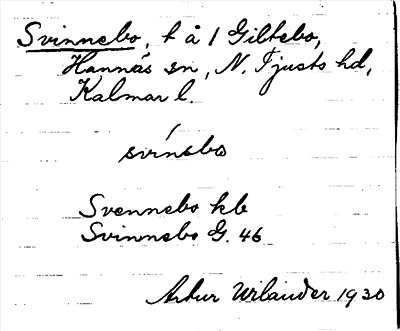 Svinnebo, t å 1 Giltebo,
Hannäs sn, N. Tjusts hd,
Kalmar l.
svinsbo
Svennebo kb
Svinnebo G. 46
Artur Urlander 1930